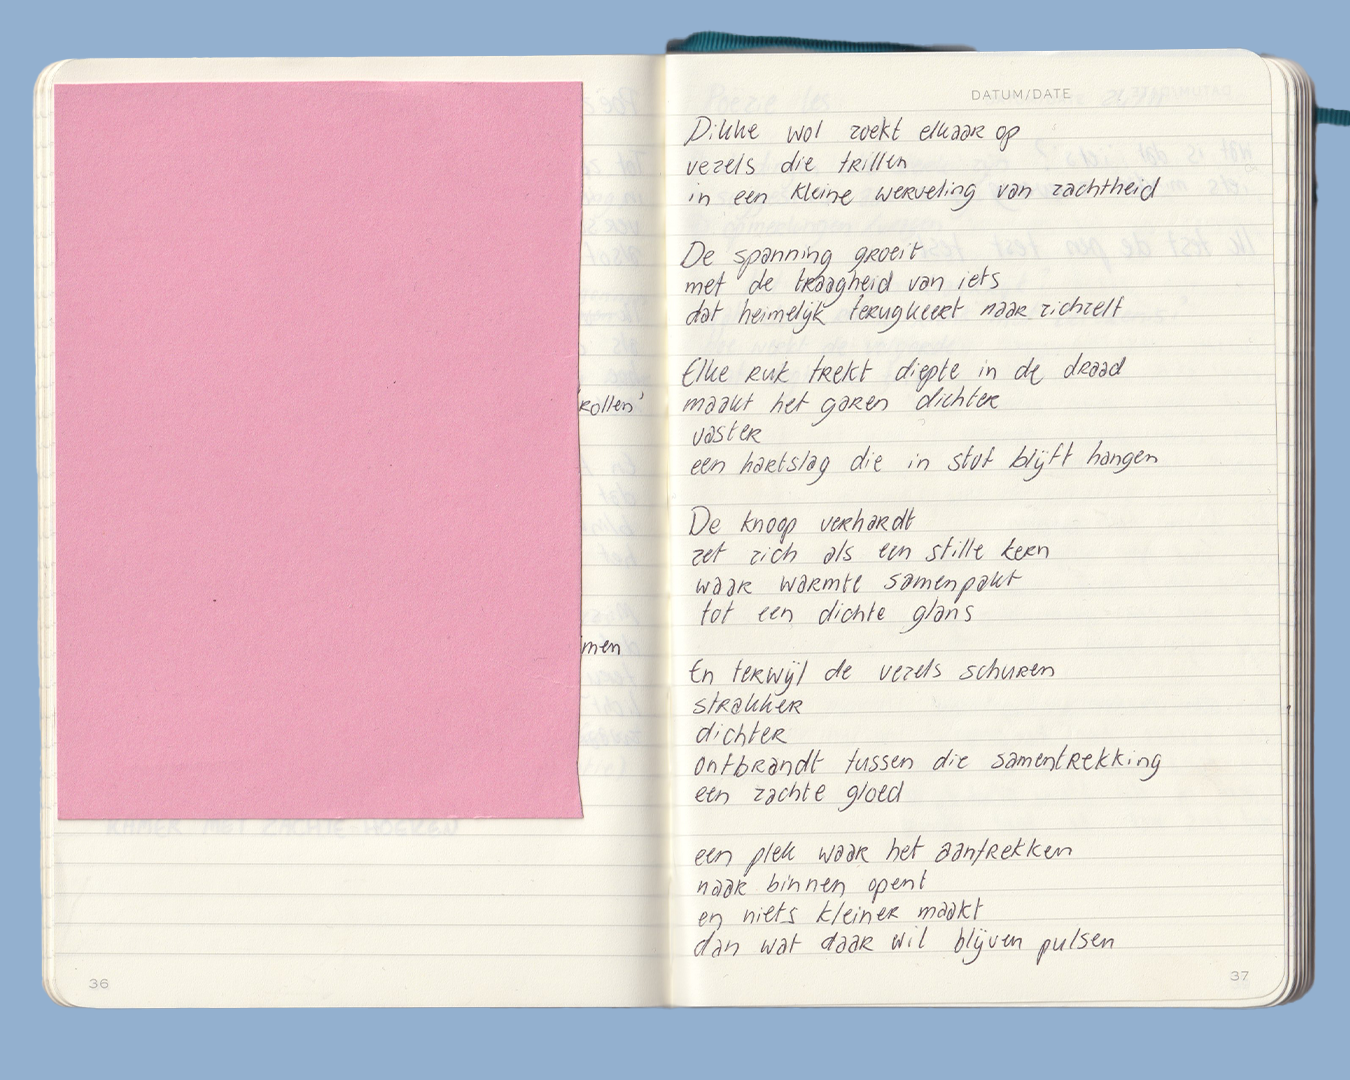 rollen'
men
KAMER MET ZACHTE HOEKEN
36
DATUM/DATE
Dikke wol zoekt elkaar op
vezels die trillen
in een kleine werveling van zachtheid
De spanning groeit
met de traagheid van iets
dat heimelijk terugkeert naar zichzelf
Elke ruk trekt diepte in de draad
maakt het garen dichter
vaster
een hartslag die in stof blijft hangen
De knoop verhardt
zet zich als een stille kern
waar warmte samenpakt
tot een dichte glans
En terwijl de vezels schuren
strakker
dichter
ontbrandt tussen die samentrekking
een zachte gloed
een plek waar het aantrekken
naar binnen opent
en niets kleiner maakt
dan wat daar wil blijven pulsen
37